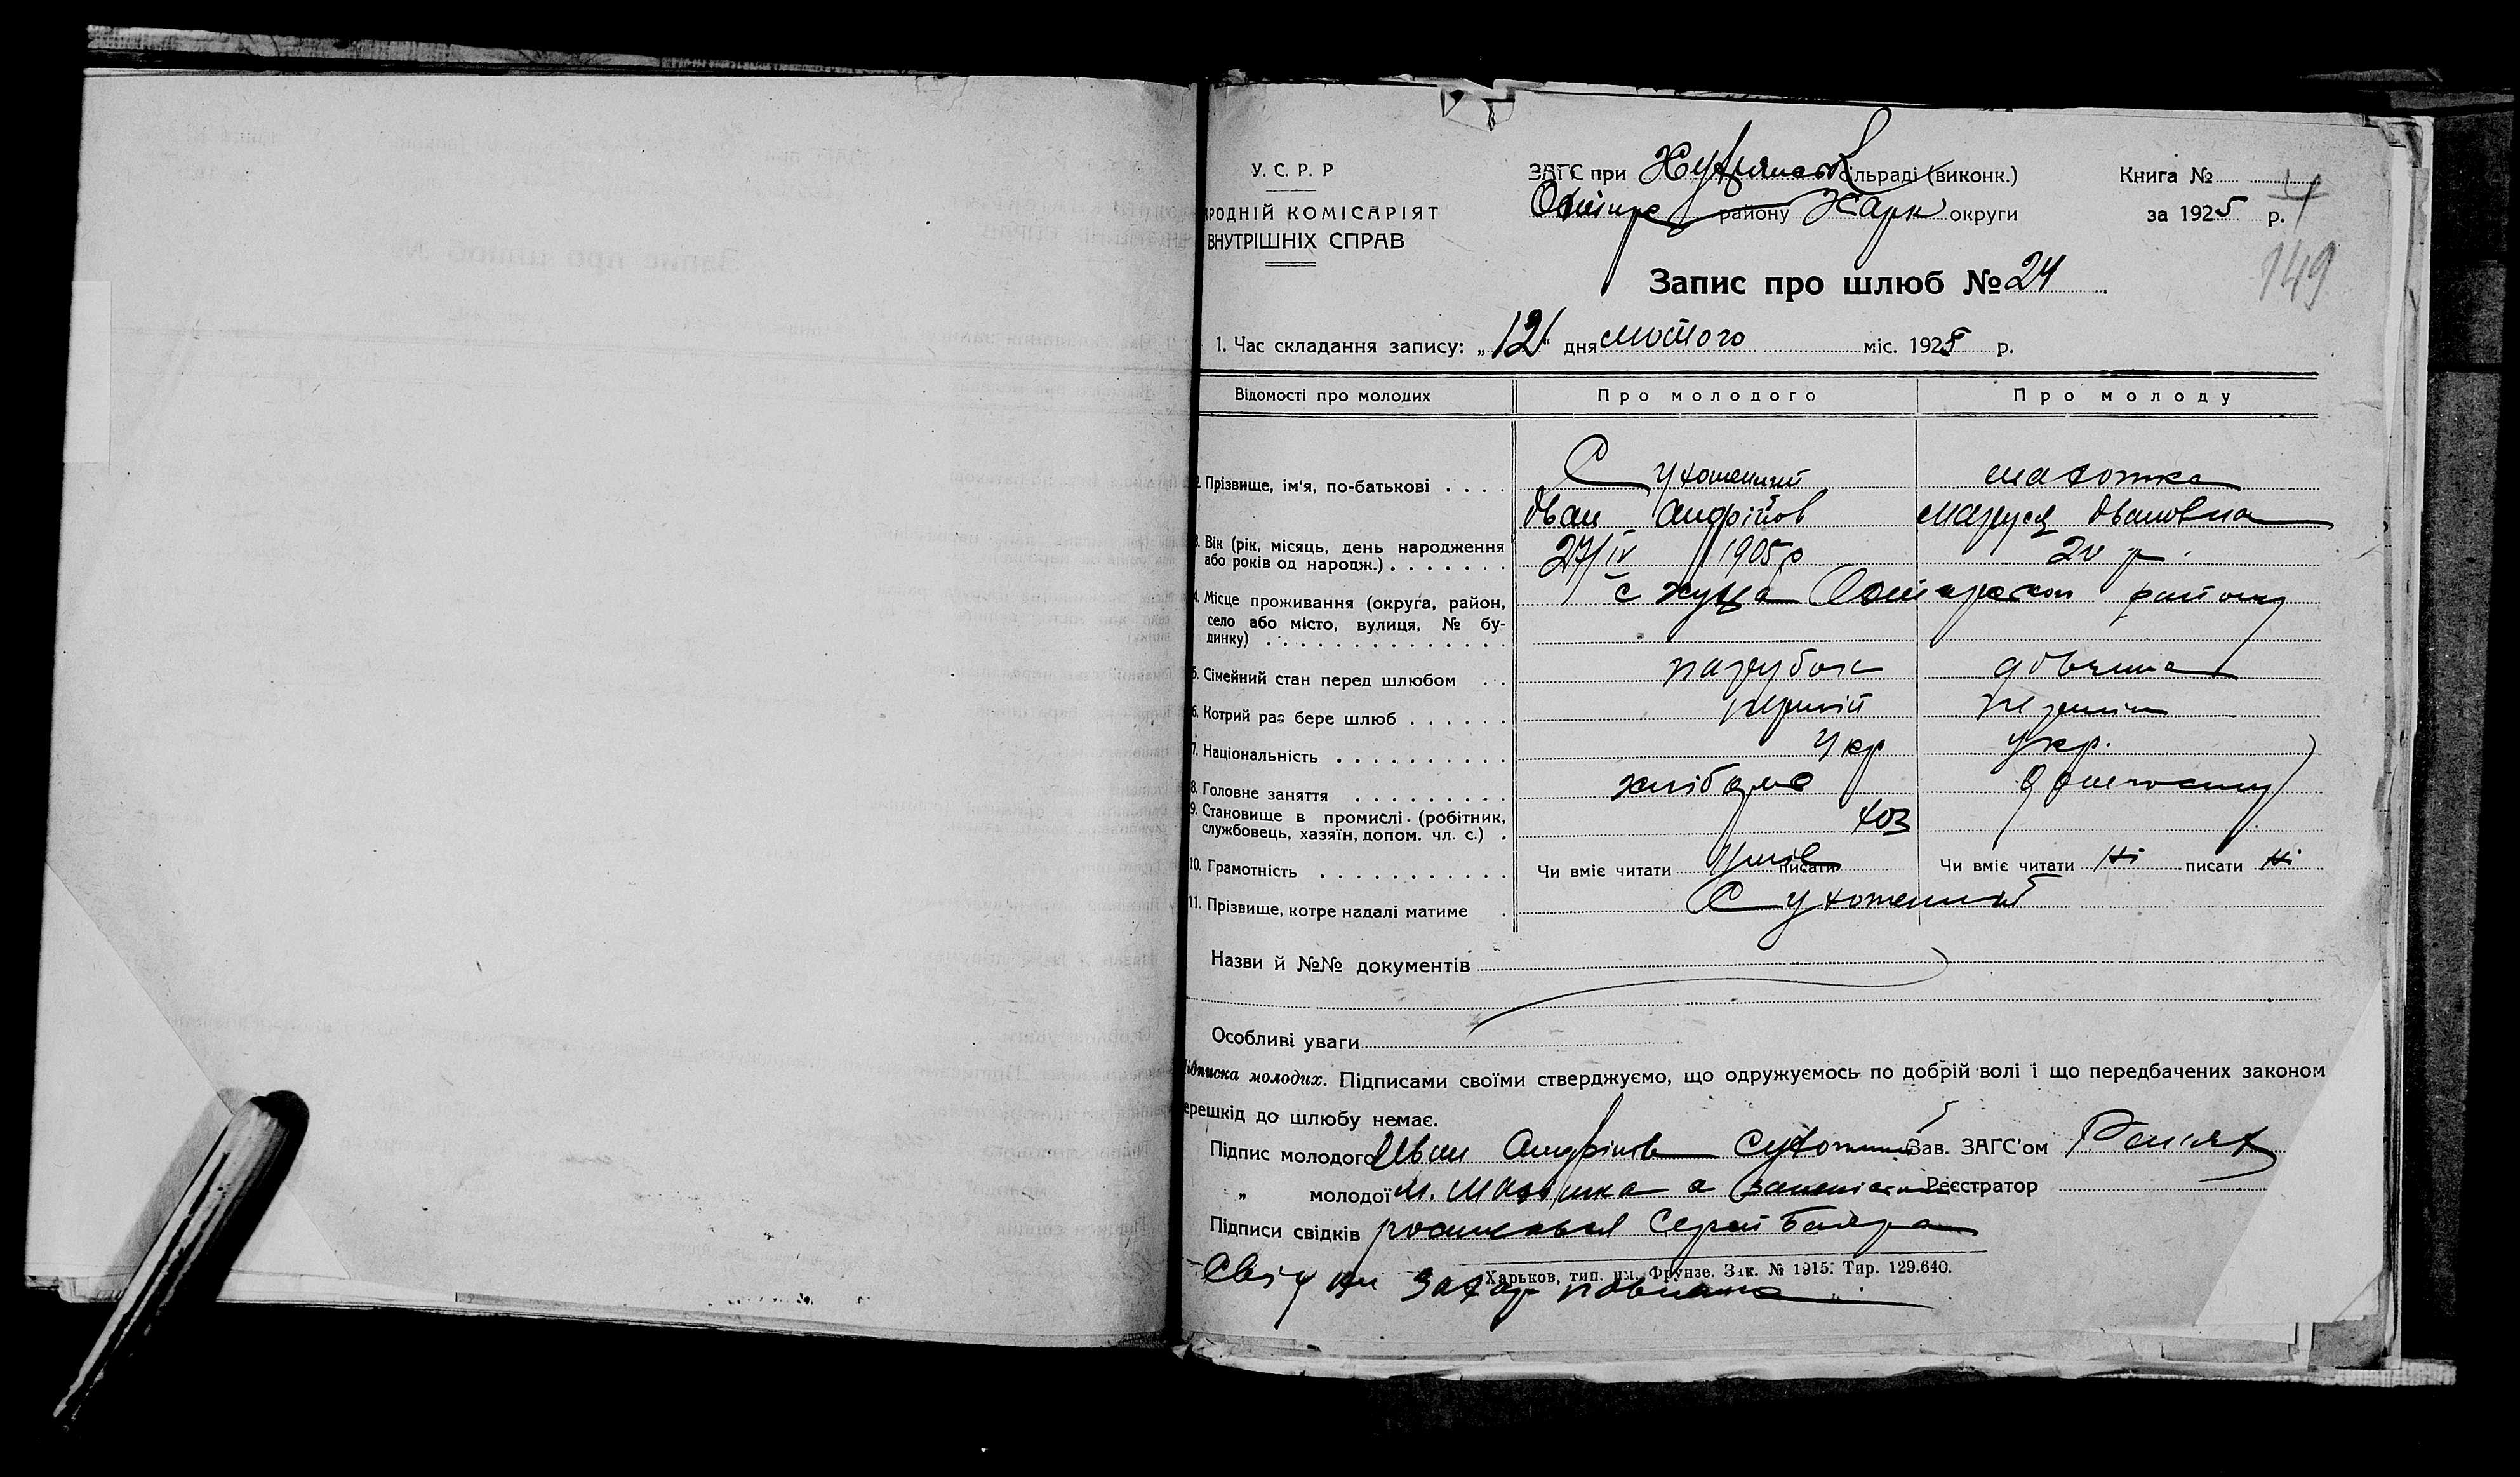 У. С. Р. Р
РОДНІЙ КОМІСАРІЯТ
ВНУТРІШНІХ СПРАВ
ЗАГС при сільраді (виконк.)
району Харк округи
Книга №
за 1925 р.
149
Запис про шлюб № 24
1. Час складання запису: „12“ дня лютого міс. 1925 р.
Відомості про молодих Про молодого Про молоду
2. Прізвище, ім'я, по-батькові . . . . Сухоменний
Іван Андрійов Маруся Івановна
3. Вік (рік, місяць, день народження
або років од народж.) . . . . . . . 27/IV 1905 р 20 р.
4. Місце проживання (округа, район, с району
село або місто, вулиця, № бу-
динку) . . . . . . . . . . . . . .
5. Сімейний стан перед шлюбом . . парубок дівчина
6. Котрий раз бере шлюб . . . . . . перший
7. Національність . . . . . . . . . . Укр Укр.
8. Головне заняття . . . . . . . . . хлібороб
9. Становище в промислі. (робітник,
службовець, хазяїн, допом. чл. с.) . хоз
10. Грамотність . . . . . . . . . . . Чи вміє читати уміє писати Чи вміє читати Ні писати Ні
11. Прізвище, котре надалі матиме . Сухоменний
Назви й №№ документів
Особливі уваги
ідписка молодих. Підписами своїми стверджуємо, що одружуємось по добрій волі і що передбачених законом
ерешкід до шлюбу немає.
Підпис молодого Иван Зав. ЗАГС'ом
„ молодої М. Реєстратор
Підписи свідків Сергей
Харьков, тип. им. Фрунзе. Зак. № 1915. Тир. 129.640.
Свідки Захар